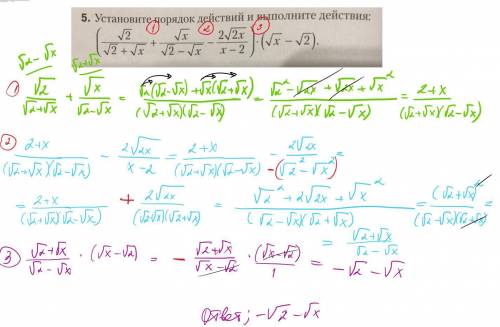 5. Установите порядок действий и выполните действия:
① ② ③
(√2/(√2+√x) + √x/(√2−√x) − 2√2x/(x−2)) · (√x − √2).
① √2/(√2+√x) (√2−√x) + √x/(√2−√x) (√2+√x) = (√2(√2−√x)+√x(√2+√x))/((√2+√x)(√2−√x)) = (√2² − √2x + √2x + √x²)/((√2+√x)(√2−√x)) = (2+x)/((√2+√x)(√2−√x))
② (2+x)/((√2+√x)(√2−√x)) − 2√2x/(x−2) = (2+x)/((√2+√x)(√2−√x)) − 2√2x/(−(√2²−√x²)) =
= (2+x)/((√2+√x)(√2−√x)) + 2√2x/((√2−√x)(√2+√x)) = (√2² + 2√2x + √x²)/((√2−√x)(√2+√x)) = (√2+√x)²/((√2−√x)(√2+√x)) =
= (√2+√x)/(√2−√x)
③ (√2+√x)/(√2−√x) · (√x−√2) = − (√2+√x)/(√x−√2) · (√x−√2)/1 = −√2 − √x
Ответ: −√2 − √x